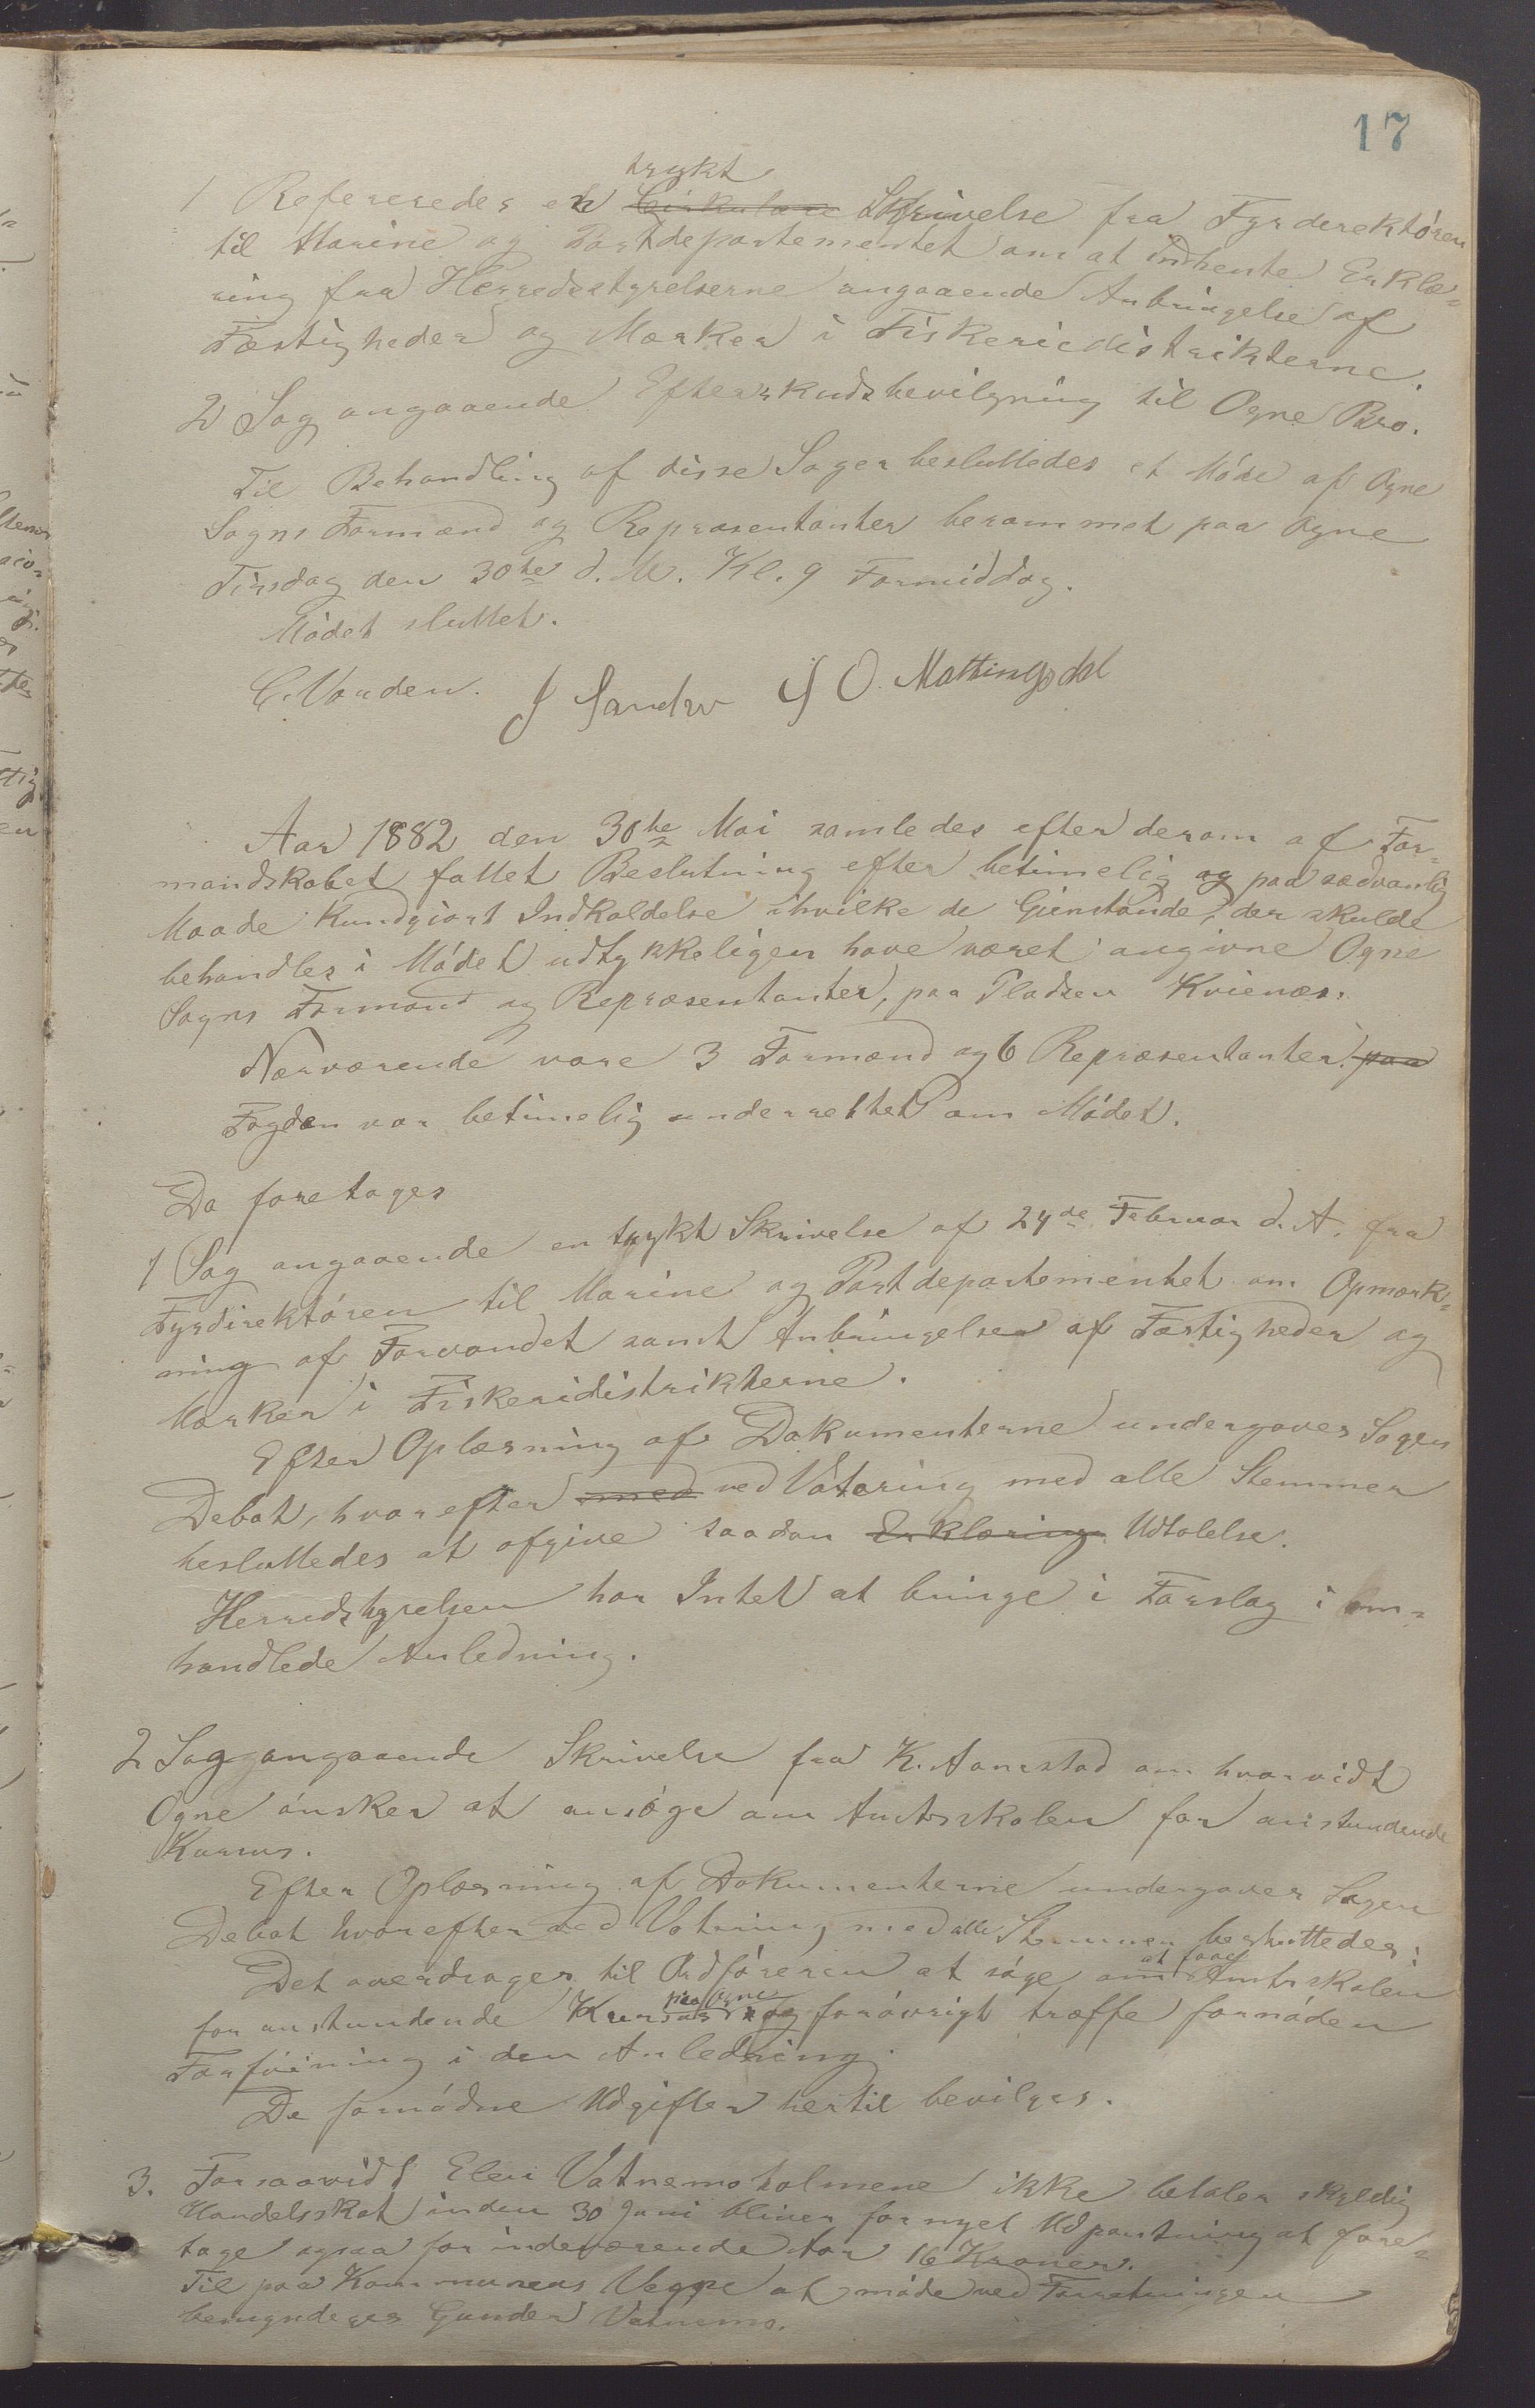 17
trykt
1 Refereredes en Cirkulære Skrivelse fra Fyrderektören
til Marine og Postdepartementet om at indhente Erklæ-
ring fra Herredsstyrelserne angaaende Anbringelse af
Fæstigheder og Mærker i Fiskeriedistrikterne.
2 Sag angaaende Efterskudsbevilgning til Ogne Bro.
Til Behandling af disse Sager besluttedes et Möde af Ogne
Sogns Formænd og Repræsentanter berammet paa Ogne
Tirsdag den 30te d. M. Kl. 9 Formiddag.
Mödet sluttet.
C. Vanden. J Sandve O. Mattingsdal
Aar 1882 den 30te Mai samledes efter derom af For-
mandskabet fattet Beslutning efter betimelig og paa sædvanlig
Maade Kundgiort Indkaldelse ihvilke de Gienstande, der skulde
behandles i Mödet udtykkeligen have været angivne Ogne
Sogns Formænd og Repræsentanter, paa Pladsen Kvienæs.
Nærværende vare 3 Formænd og 6 Repræsentanter. paa
Fogden var betimelig underrettet om Mödet.
Da foretages
1 Sag angaaende en trykt Skrivelse af 24de Februar d. A. fra
Fyrdirektören til Marine og Postdepartementet om Opmærk-
ning af Farvandet samt Anbringelse af Fæstigheder og
Mærker i Fiskeridistrikterne.
Efter Oplæsning af Dokumenterne undergaves Sagen
Debat, hvorefter med ved Votering med alle Stemmer
besluttedes at afgive saadan Erklæring Udtalelse.
Herredstyrelsen har Intet at bringe i Forslag i om-
handlede Anledning.
2 Sag angaaende Skrivelse fra K. Aarrestad om hvorvidt
Ogne önsker at ansöge om Amtsskolen for anstundende
Kursus.
Efter Oplæsning af Dokumenterne undergaves Sagen
Debat hvorefter ved Votering med alle Stemmer besluttedes:
at faae
Det overdrages til Ordföreren at söge om Amtsskolen
paa Ogne
for anstundende Kursus og forövrigt træffe fornöden
Forföining i den Anledning.
De fornödne Udgifter hertil bevilges.
3. Forsaavidt Elen Vatnemo holmene ikke betaler skyldig
Handelsskat inden 30 Juni bliver fornyet Udpantning at fore-
tage ogsaa for indeværende Aar 16 Kroner.
Til paa Kommunens Vegne at möde ved Forretningen
bemyndiges Gunder Vatnemo.